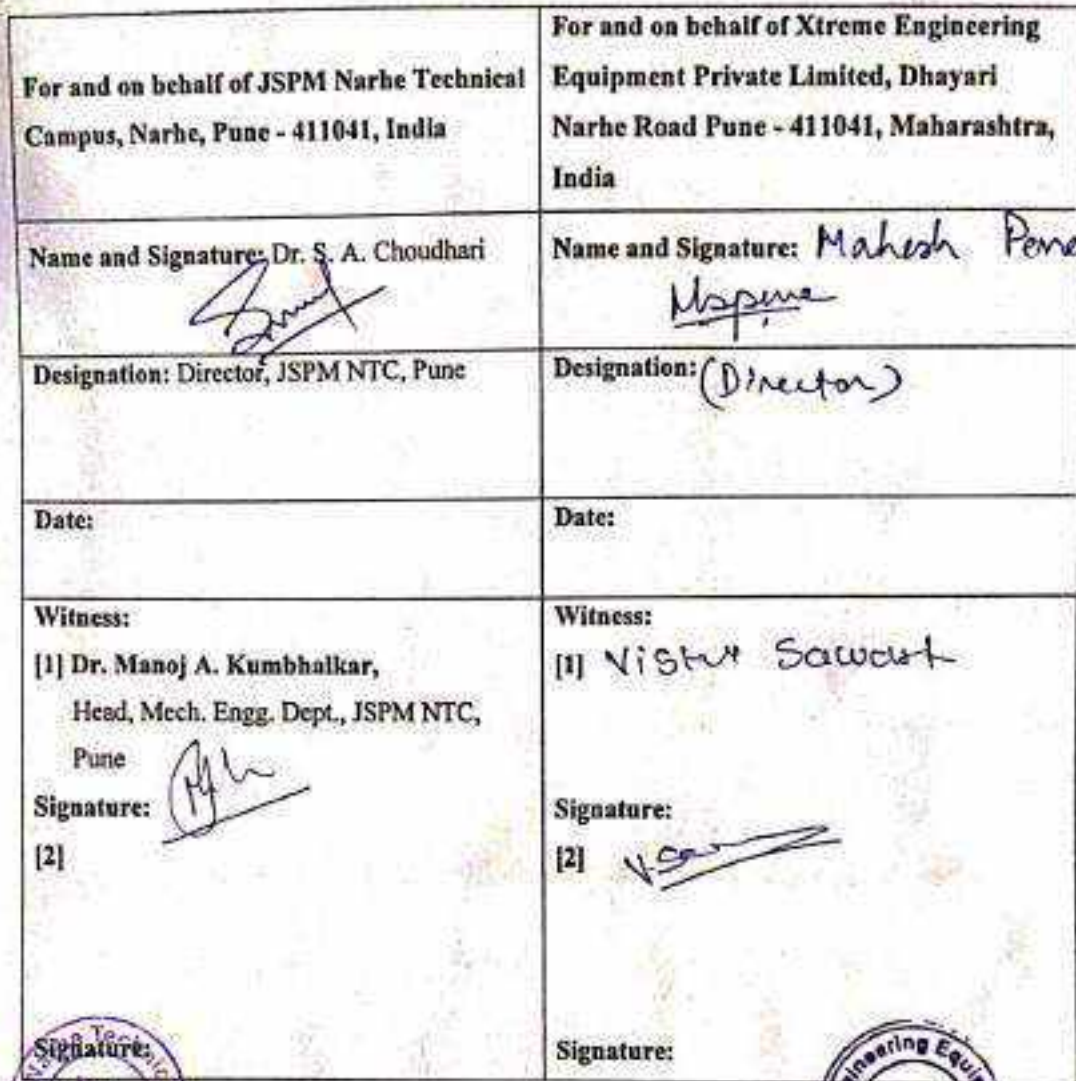 For and on behalf of JSPM Narhe Technical
Campus, Narhe, Pune - 411041, India
For and on behalf of Xtreme Engineering
Equipment Private Limited, Dhayari
Narhe Road Pune - 411041, Maharashtra,
India
Name and Signature: Dr. S. A. Choudhari
Name and Signature: Mahesh Pene
Mspene
Designation: Director, JSPM NTC, Pune
Designation: (Director)
Date:
Date:
Witness:
[1] Dr. Manoj A. Kumbhalkar,
Head, Mech. Engg. Dept., JSPM NTC,
Pune
Signature:
[2]
Signature:
Witness:
[1] Sawant
Signature:
[2]
Signature: